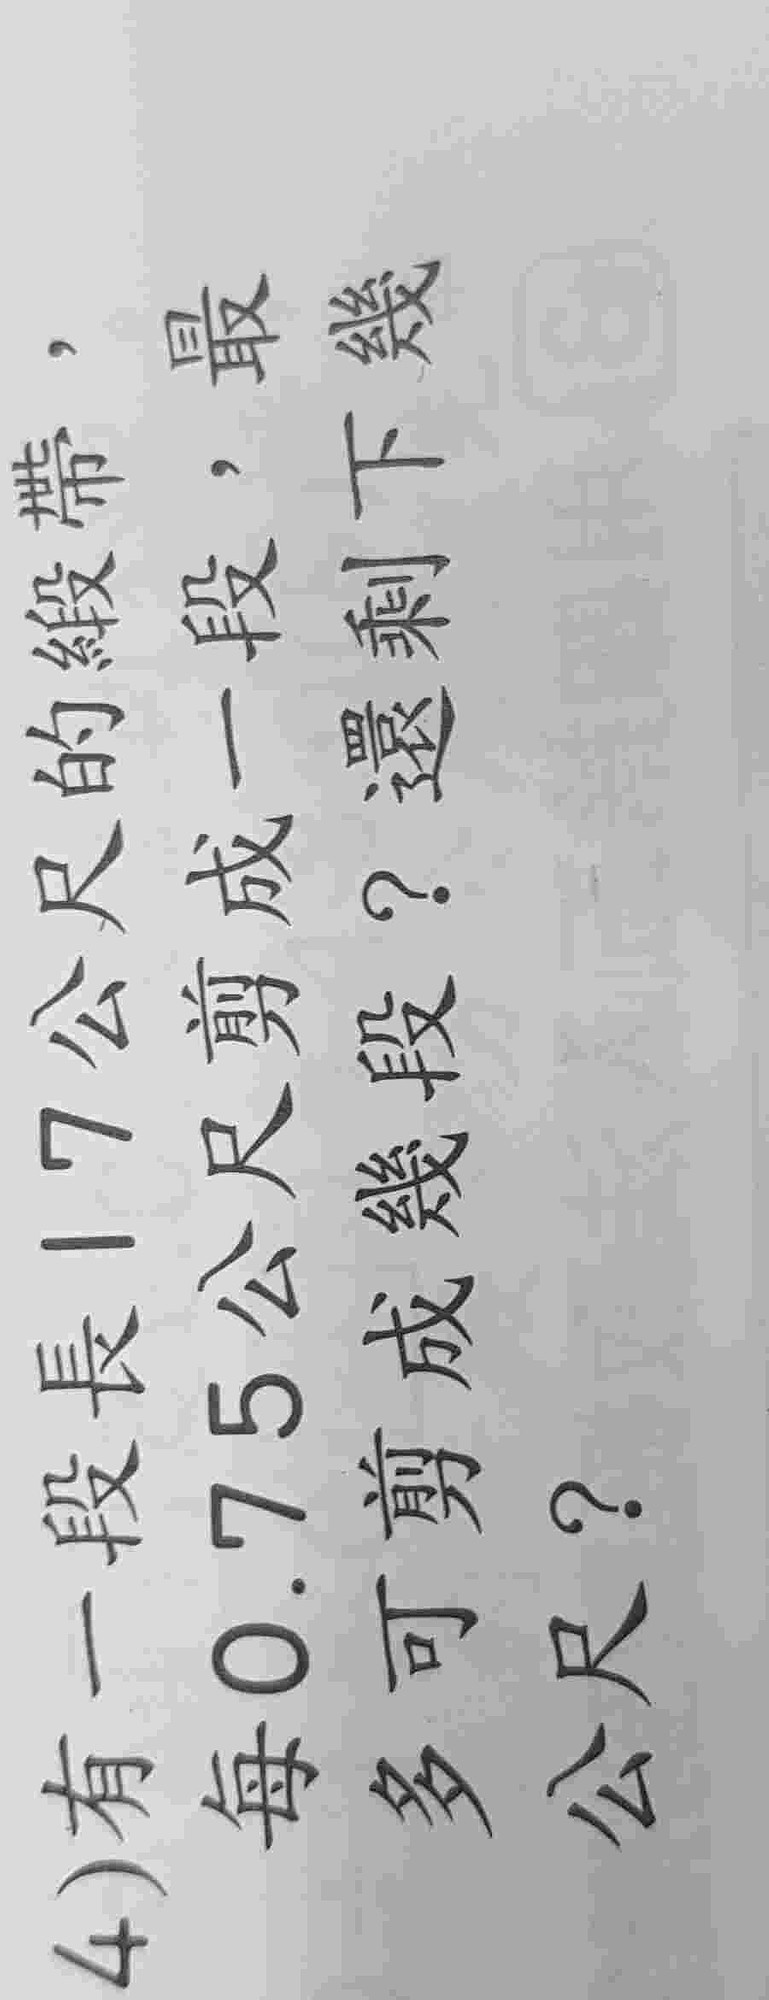 4)有一段長17公尺的緞帶，
每0.75公尺剪成一段，最
多可剪成幾段？還剩下幾
公尺？